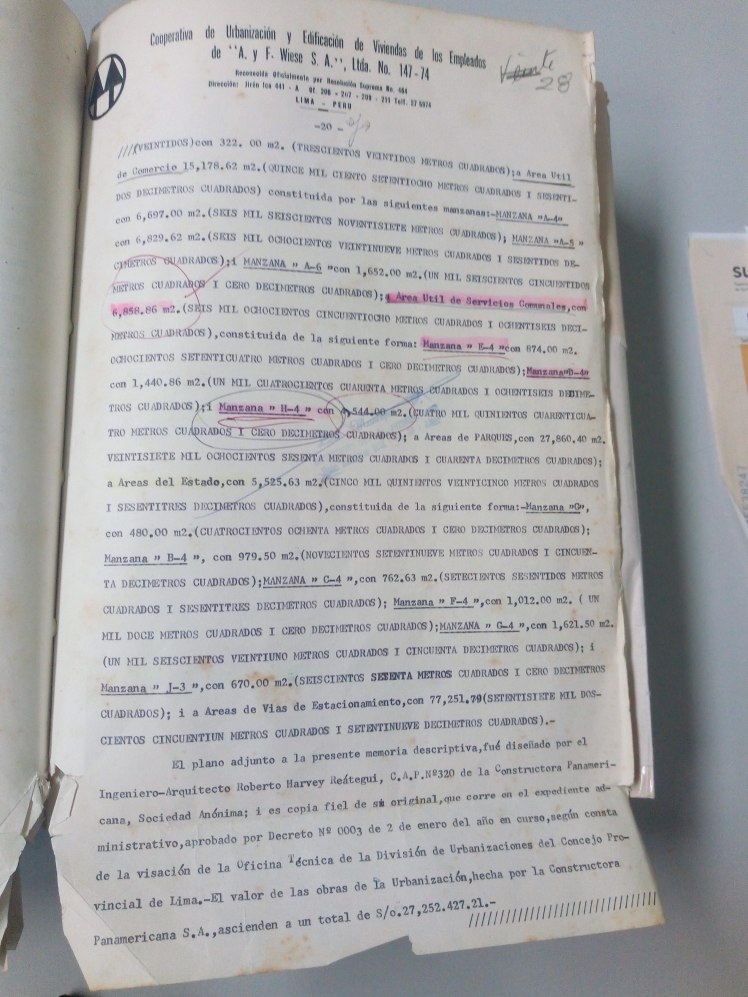 Cooperativa de Urbanización y Edificación de Viviendas de los Empleados
de "A. y F. Wiese S. A.", Ltda. No. 147-74
Reconocida Oficialmente por Resolución Suprema No. 464
Dirección: Jirón Ica 441 - A Of. 206 - 207 - 209 - 211 Telf. 27 5974
LIMA - PERU
28
-20-
///(VEINTIDOS)con 322. 00 m2. (TRESCIENTOS VEINTIDOS METROS CUADRADOS);a Area Util
de Comercio 15,178.62 m2.(QUINCE MIL CIENTO SETENTIOCHO METROS CUADRADOS I SESENTI-
DOS DECIMETROS CUADRADOS) constituida por las siguientes manzanas:-MANZANA "A-4"
con 6,697.00 m2.(SEIS MIL SEISCIENTOS NOVENTISIETE METROS CUADRADOS); MANZANA "A-5"
con 6,829.62 m2.(SEIS MIL OCHOCIENTOS VEINTINUEVE METROS CUADRADOS I SESENTIDOS DE-
CIMETROS CUADRADOS);i MANZANA " A-6 "con 1,652.00 m2.(UN MIL SEISCIENTOS CINCUENTIDOS
METROS CUADRADOS I CERO DECIMETROS CUADRADOS);a Area Util de Servicios Comunales,con
6,858.86 m2.(SEIS MIL OCHOCIENTOS CINCUENTIOCHO METROS CUADRADOS I OCHENTISEIS DECI-
METROS CUADRADOS),constituida de la siguiente forma: Manzana " E-4 "con 874.00 m2.
OCHOCIENTOS SETENTICUATRO METROS CUADRADOS I CERO DECIMETROS CUADRADOS);Manzana"D-4"
con 1,440.86 m2.(UN MIL CUATROCIENTOS CUARENTA METROS CUADRADOS I OCHENTISEIS DECIME-
TROS CUADRADOS);i Manzana " H-4 " con 4,544.00 m2.(CUATRO MIL QUINIENTOS CUARENTICUA-
TRO METROS CUADRADOS I CERO DECIMETROS CUADRADOS); a Areas de PARQUES,con 27,860.40 m2.
VEINTISIETE MIL OCHOCIENTOS SESENTA METROS CUADRADOS I CUARENTA DECIMETROS CUADRADOS);
a Areas del Estado,con 5,525.63 m2.(CINCO MIL QUINIENTOS VEINTICINCO METROS CUADRADOS
I SESENTITRES DECIMETROS CUADRADOS),constituida de la siguiente forma:-Manzana "G",
con 480.00 m2.(CUATROCIENTOS OCHENTA METROS CUADRADOS I CERO DECIMETROS CUADRADOS);
Manzana " B-4 ", con 979.50 m2.(NOVECIENTOS SETENTINUEVE METROS CUADRADOS I CINCUEN-
TA DECIMETROS CUADRADOS);MANZANA " C-4 ",con 762.63 m2.(SETECIENTOS SESENTIDOS METROS
CUADRADOS I SESENTITRES DECIMETROS CUADRADOS); Manzana " F-4 ",con 1,012.00 m2. ( UN
MIL DOCE METROS CUADRADOS I CERO DECIMETROS CUADRADOS);MANZANA " G-4 ",con 1,621.50 m2.
(UN MIL SEISCIENTOS VEINTIUNO METROS CUADRADOS I CINCUENTA DECIMETROS CUADRADOS); i
Manzana " J-3 ",con 670.00 m2.(SEISCIENTOS SESENTA METROS CUADRADOS I CERO DECIMETROS
CUADRADOS); i a Areas de Vias de Estacionamiento,con 77,251.79(SETENTISIETE MIL DOS-
CIENTOS CINCUENTIUN METROS CUADRADOS I SETENTINUEVE DECIMETROS CUADRADOS).-
El plano adjunto a la presente memoria descriptiva,fué diseñado por el
Ingeniero-Arquitecto Roberto Harvey Reátegui, C.A.P.Nº320 de la Constructora Panameri-
cana, Sociedad Anónima; i es copia fiel de su original,que corre en el expediente ad-
ministrativo,aprobado por Decreto Nº 0003 de 2 de enero del año en curso,según consta
de la visación de la Oficina Técnica de la División de Urbanizaciones del Concejo Pro-
vincial de Lima.-El valor de las obras de la Urbanización,hecha por la Constructora
Panamericana S.A.,ascienden a un total de S/o.27,252.427.21.- ////////////////////////
SU